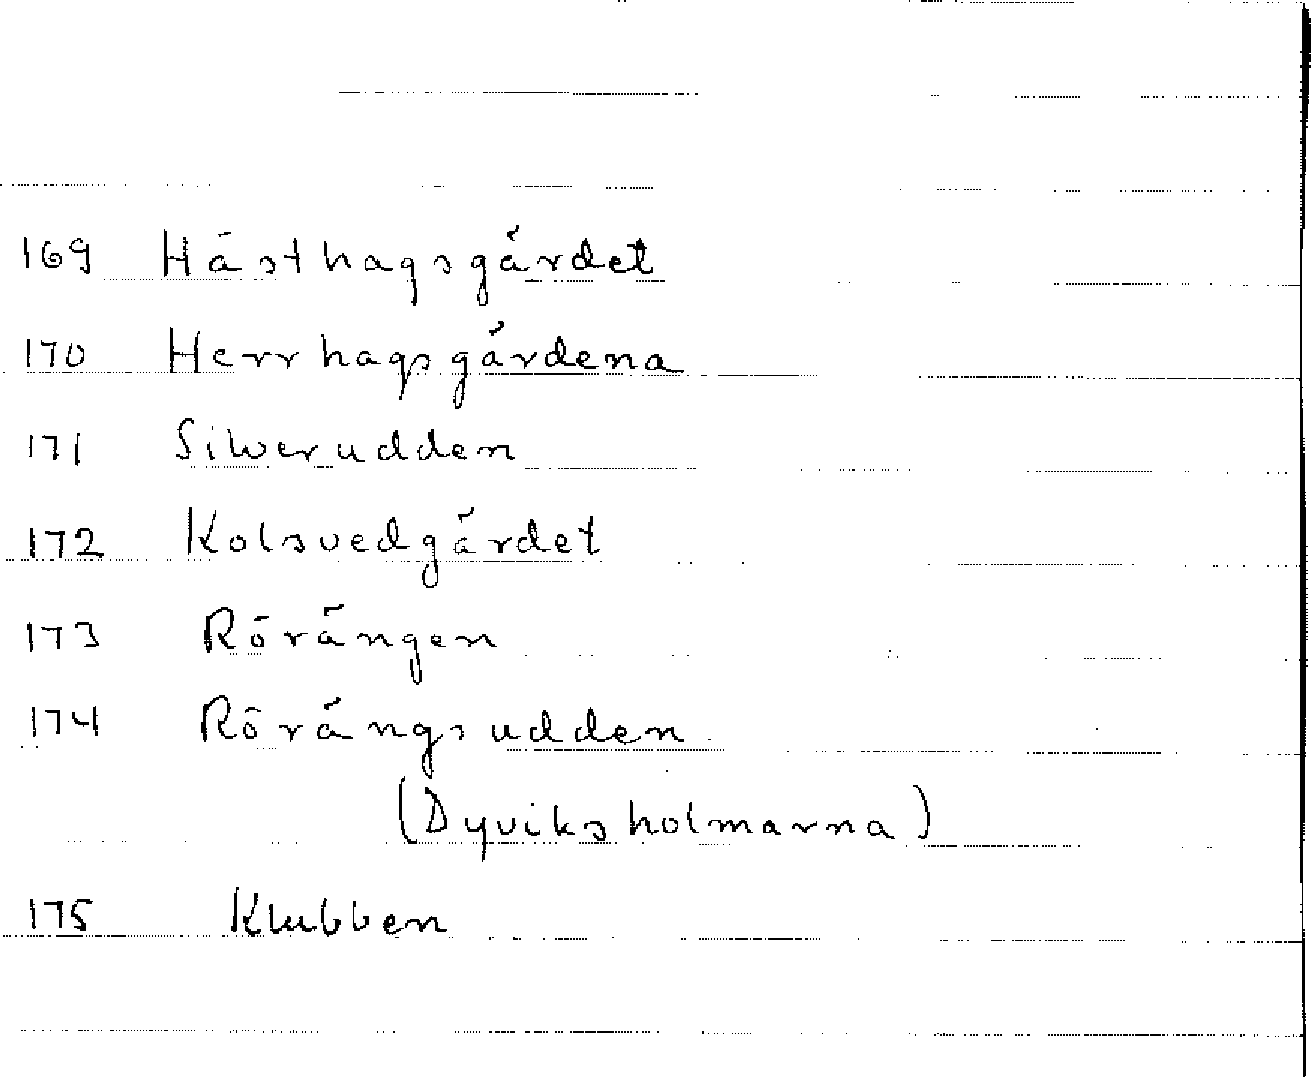 169 Hästhagsgärdet
170 Herrhagsgärdena
171 Silverudden
172 Kolsvedgärdet
173 Rörängen
174 Rörängsudden
(Dyviksholmarna)
175 Klubben